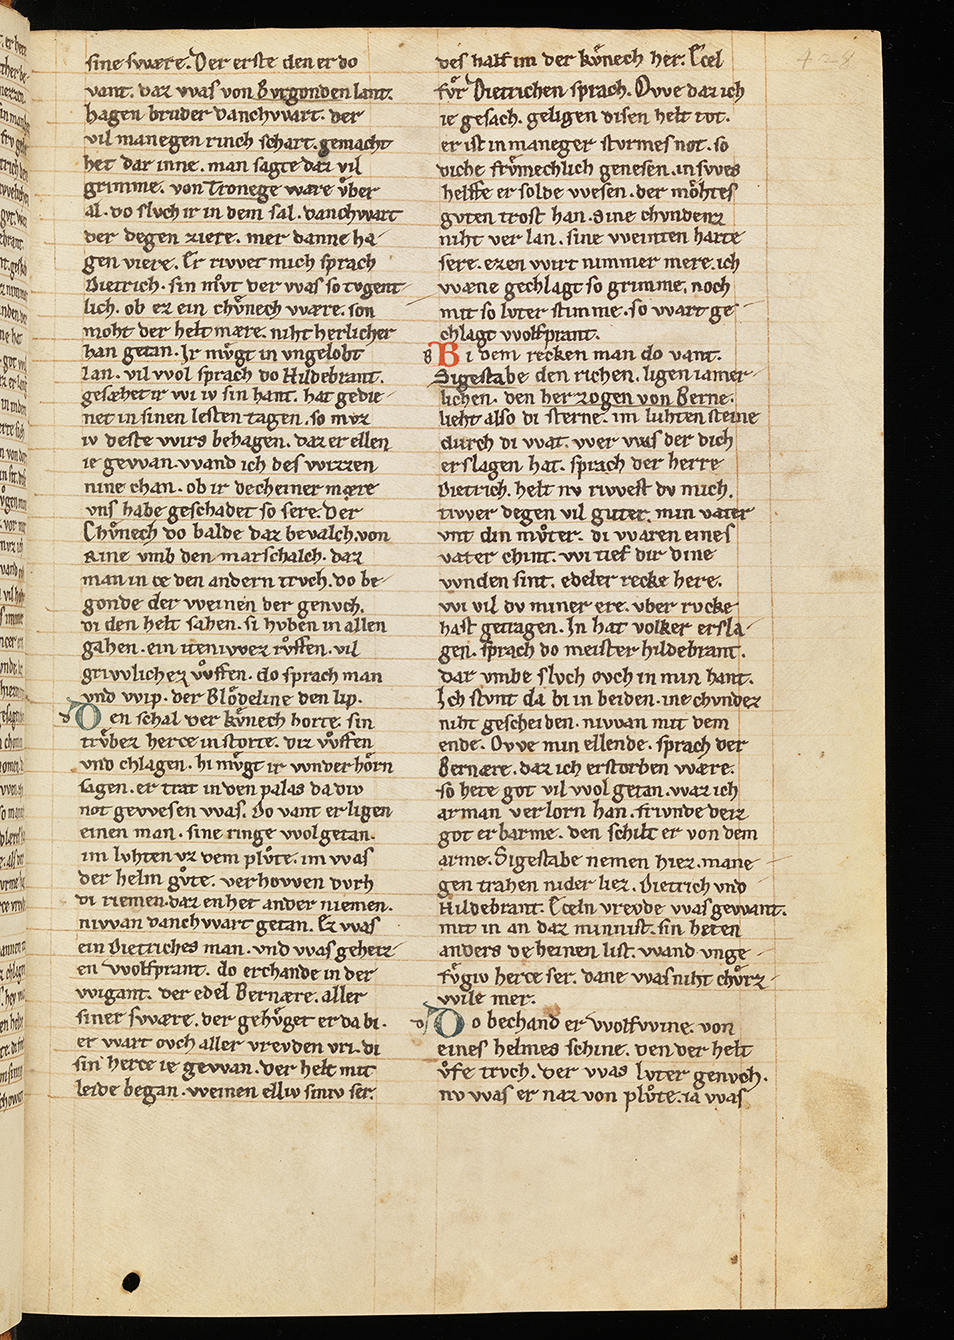 sine swære. Der erste den er do
vant. daz was von Bvrgonden lant.
hagen brvder danchwart. der
vil manegen rinch schart. gemacht
het dar inne. man sagte daz vil
grimme. von Tronege ware vͦber
al. do slvch ir in dem sal. danchwart
der degen ziere. mer danne ha-
gen viere. Er riwet mich sprach
Dietrich. sin mvͦt der was so tvgent-
lich. ob er ein chvͤnech wære. son
moht der helt mære. niht herlicher
han getan. Ir mvͤgt in vngelobt
lan. vil wol sprach do Hildebrant.
gesæhet ir wi iv sin hant. hat gedie-
net in sinen lesten tagen. so mvz
iv deste wirs behagen. daz er ellen
ie gewan. wand ich des wizzen
nine chan. ob ir decheiner mære
vns habe geschadet so sere. Der
Chvͤnech do balde daz bevalch. von
Rine vmb den marschalch. daz
man in ce den andern trvch. do be-
gonde der weinen der genvch.
di den helt sahen. si hvben in allen
gahen. ein iteniwez rvͦffen. vil
griwlichez wͦffen. do sprach man
vnd wip. der Blodeline den lip.
Den schal der kvͤnech horte. sin
trvͤbez herce in storte. diz wͦffen
vnd chlagen. hi mvͤgt ir wnder horn
sagen. er trat in den palas da div
not gewesen was. Do vant er ligen
einen man. sine ringe wol getan.
im lvhten vz dem plvͦte. im was
der helm gvͦte. verhowen dvrh
di riemen. daz en het ander niemen.
niwan danchwart getan. Ez was
ein Dietriches man. vnd was geheiz-
en wolfprant. do erchande in der
wigant. der edel Bernære. aller
siner swære. der gehvͤget er da bi.
er wart ovch aller vrevden vri. di
sin herce ie gewan. der helt mit
leide began. weinen elliv siniv ser.
des half im der kvͤnech her. Ecel
fvͤr Dietrichen sprach. Owe daz ich
ie gesach. geligen disen helt tot.
er ist in maneger stvrmes not. so
diche frvͤmechlich genesen. in swes
helffe er solde wesen. der mohtes
gvten trost han. Sine chvndenz
niht ver lan. sine weinten harte
sere. ezen wirt nimmer mere. ich
wæne gechlagt so grimme. noch
mit so lvter stimme. so wart ge-
chlagt wolfprant.
Bi dem recken man do vant.
Sigestabe den richen. ligen iamer-
lichen. den herzogen von Berne.
lieht also di sterne. im luhten steine
durch di wat. wer was der dich
erslagen hat. sprach der herre
Dietrich. helt nv riwest dv mich.
tiwer degen vil guter. min vater
vnt din mvͦter. di waren eines
vater chint. wi tief dir dine
wnden sint. edeler recke here.
wi vil dv miner ere. vber rvcke
hast getragen. In hat volker ersla-
gen. sprach do meister hildebrant.
dar vmbe slvch ovch in min hant.
Ich stvnt da bi in beiden. ine chvndez
niht gescheiden. niwan mit dem
ende. Owe min ellende. sprach der
Bernære. daz ich erstorben wære.
so hete got vil wol getan. waz ich
arman verlorn han. frivnde deiz
got erbarme. den schilt er von dem
arme. Sigestabe nemen hiez. mane-
gen trahen nider liez. Dietrich vnd
Hildebrant. Eceln vrevde was gewant.
mit in an daz minnist. sin heten
anders deheinen list. wand vnge-
fvͤgiv herce ser. dane was niht chvͦrz-
wile mer.
Do bechand er wolfwine. von
eines helmes schine. den der helt
vͤfe trvch. der was lvter genvch.
nv was er naz von plvͦte. ia was